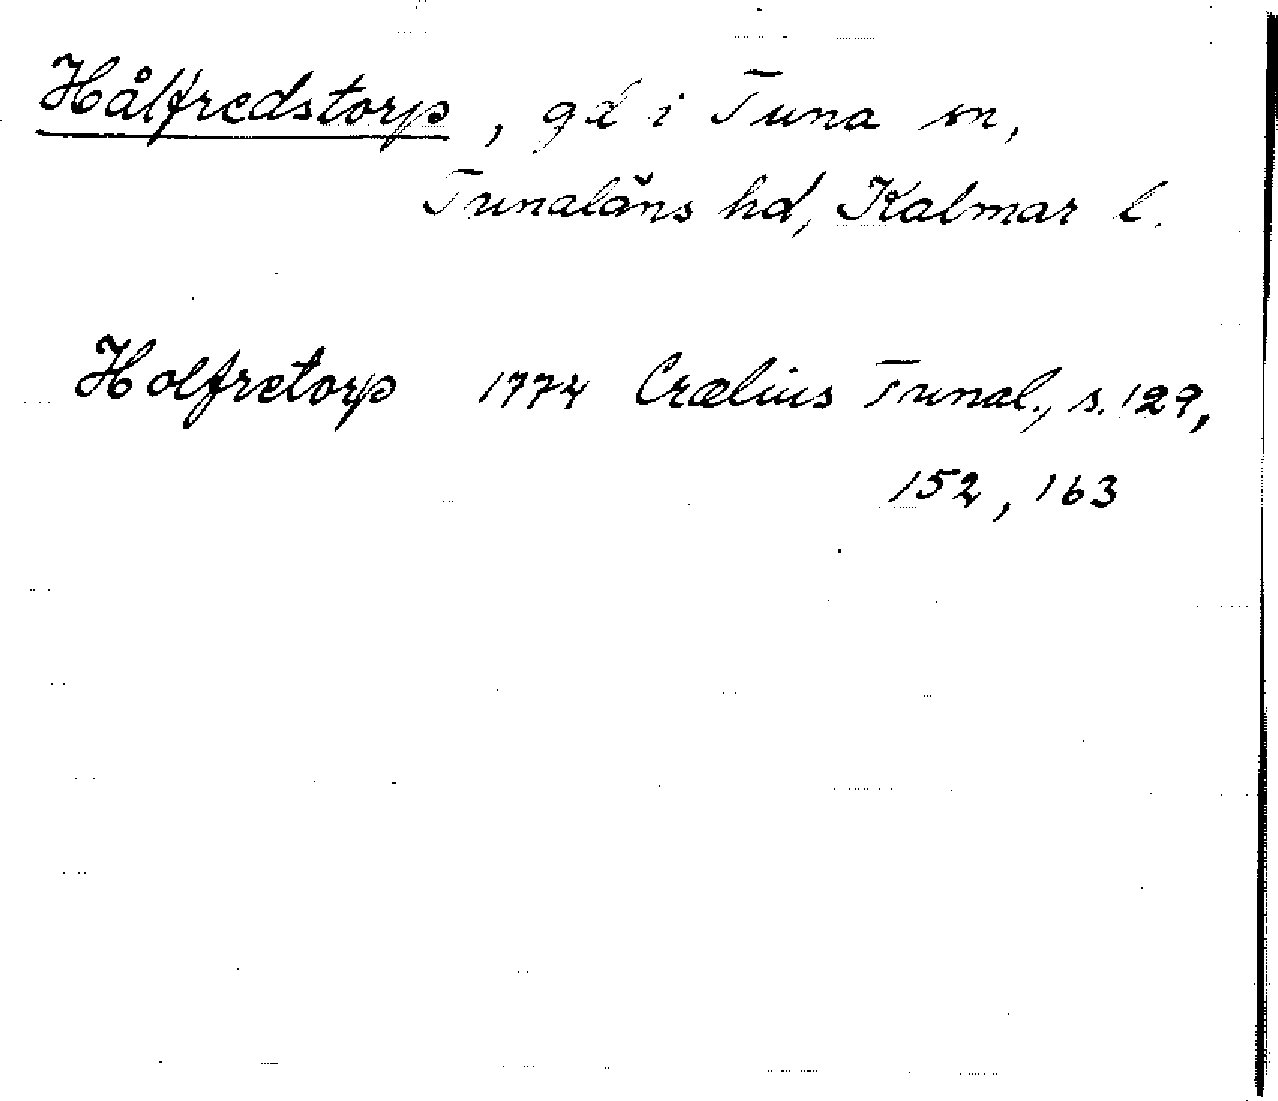 Hålfredstorp, gd i Tuna sn,
Tunaläns hd, Kalmar l.
Holfretorp 1774 Crælius Tunal., s. 129,
152, 163